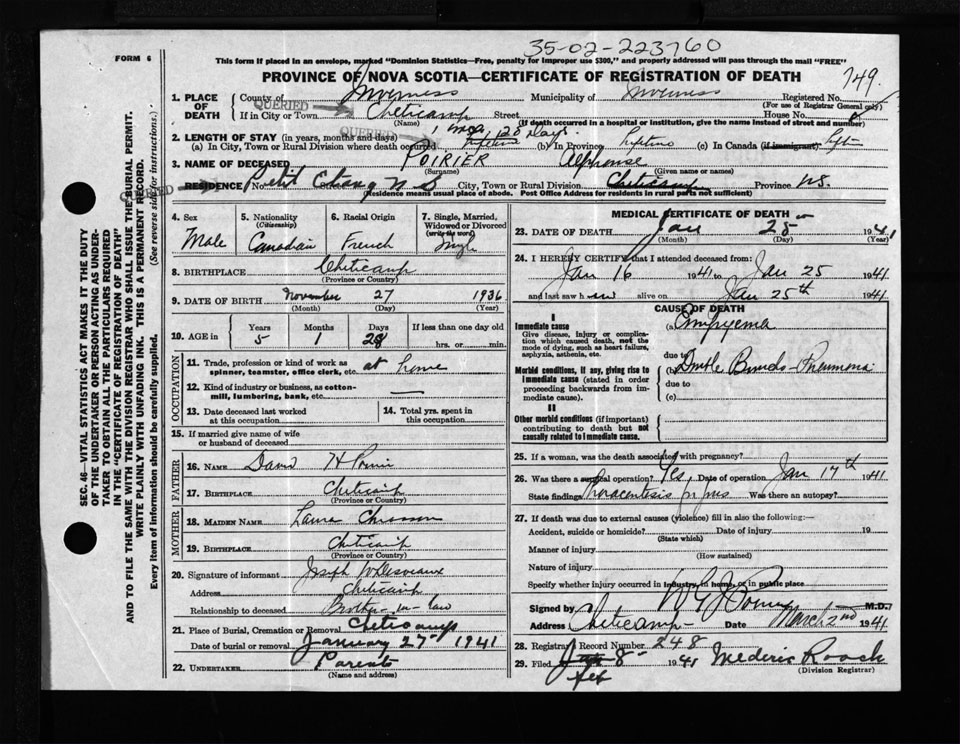 35-02-223760
FORM 6
This form if placed in an envelope, marked "Dominion Statistics—Free, penalty for improper use $300," and properly addressed will pass through the mail "FREE"
PROVINCE OF NOVA SCOTIA—CERTIFICATE OF REGISTRATION OF DEATH
749
SEC. 46—VITAL STATISTICS ACT MAKES IT THE DUTY
OF THE UNDERTAKER OR PERSON ACTING AS UNDER-
TAKER TO OBTAIN ALL THE PARTICULARS REQUIRED
IN THE "CERTIFICATE OF REGISTRATION OF DEATH"
AND TO FILE THE SAME WITH THE DIVISION REGISTRAR WHO SHALL ISSUE THE BURIAL PERMIT.
WRITE PLAINLY WITH UNFADING INK. THIS IS A PERMANENT RECORD.
Every item of information should be carefully supplied. (See reverse side for instructions.)
1. PLACE OF DEATH County of Inverness Municipality of Inverness Registered No.
(For use of Registrar General only)
QUERIED
If in City or Town Cheticamp Street House No.
(Name) (If death occurred in a hospital or institution, give the name instead of street and number)
QUERIED
1 mo, 28 Days.
2. LENGTH OF STAY (in years, months and days)
(a) In City, Town or Rural Division where death occurred lifetime (b) In Province lifetime (c) In Canada (if immigrant)
3. NAME OF DECEASED POIRIER Alphonse
(Surname) (Given name or names)
QUERIED
RESIDENCE No. Petit Etang N S City, Town or Rural Division Cheticamp Province N.S.
(Residence means usual place of abode. Post Office Address for residents in rural parts not sufficient)
4. Sex
Male
5. Nationality
(Citizenship)
Canadian
6. Racial Origin
French
7. Single, Married,
Widowed or Divorced
(write the word)
Single
8. BIRTHPLACE Cheticamp
(Province or Country)
9. DATE OF BIRTH November 27 1936
(Month) (Day) (Year)
10. AGE in
Years Months Days If less than one day old
5 1 28 hrs. or min.
OCCUPATION
11. Trade, profession or kind of work as
spinner, teamster, office clerk, etc. at home
12. Kind of industry or business, as cotton-
mill, lumbering, bank, etc. —
13. Date deceased last worked
at this occupation
14. Total yrs. spent in
this occupation
15. If married give name of wife
or husband of deceased
FATHER
16. NAME David H Poirier
17. BIRTHPLACE Cheticamp
(Province or Country)
MOTHER
18. MAIDEN NAME Laura Chiasson
19. BIRTHPLACE Cheticamp
(Province or Country)
20. Signature of informant Joseph W Desveaux
Address Cheticamp
Relationship to deceased Brother-in-law
21. Place of Burial, Cremation or Removal Cheticamp
Date of burial or removal January 27th 1941
22. UNDERTAKER Parents
(Name and address)
MEDICAL CERTIFICATE OF DEATH
23. DATE OF DEATH Jan 25 1941
(Month) (Day) (Year)
24. I HEREBY CERTIFY that I attended deceased from:
Jan 16 1941 to Jan 25 1941
and last saw him alive on Jan 25th 1941
CAUSE OF DEATH
I
Immediate cause
Give disease, injury or complica-
tion which caused death, not the
mode of dying, such as heart failure,
asphyxia, asthenia, etc.
(a) Empyema
due to
Morbid conditions, if any, giving rise to
immediate cause (stated in order
proceeding backwards from im-
mediate cause).
(b) Double Broncho-Pneumonia
due to
(c)
II
Other morbid conditions (if important)
contributing to death but not
causally related to immediate cause.
25. If a woman, was the death associated with pregnancy?
26. Was there a surgical operation? Yes Date of operation Jan 17th 1941
State findings Thoracentesis for pus Was there an autopsy?
27. If death was due to external causes (violence) fill in also the following:—
Accident, suicide or homicide? Date of injury 19
(State which)
Manner of injury
(How sustained)
Nature of injury
Specify whether injury occurred in industry, in home, or in public place
Signed by M.D.
Address Cheticamp Date March 2nd 1941
28. Registrar's Record Number 248
29. Filed Jan 8- 1941 Mederic Roach
Feb (Division Registrar)